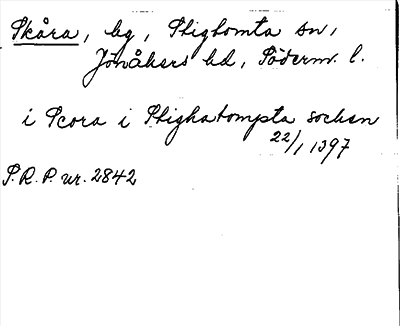 Skåra, by, Stigtomta sn,
Jönåkers hd, Söderm. l.
i Scora i Stighatompta sochen
22/1 1397
S.R.P. nr. 2842